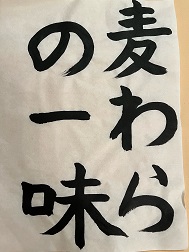 麦わら
の一味